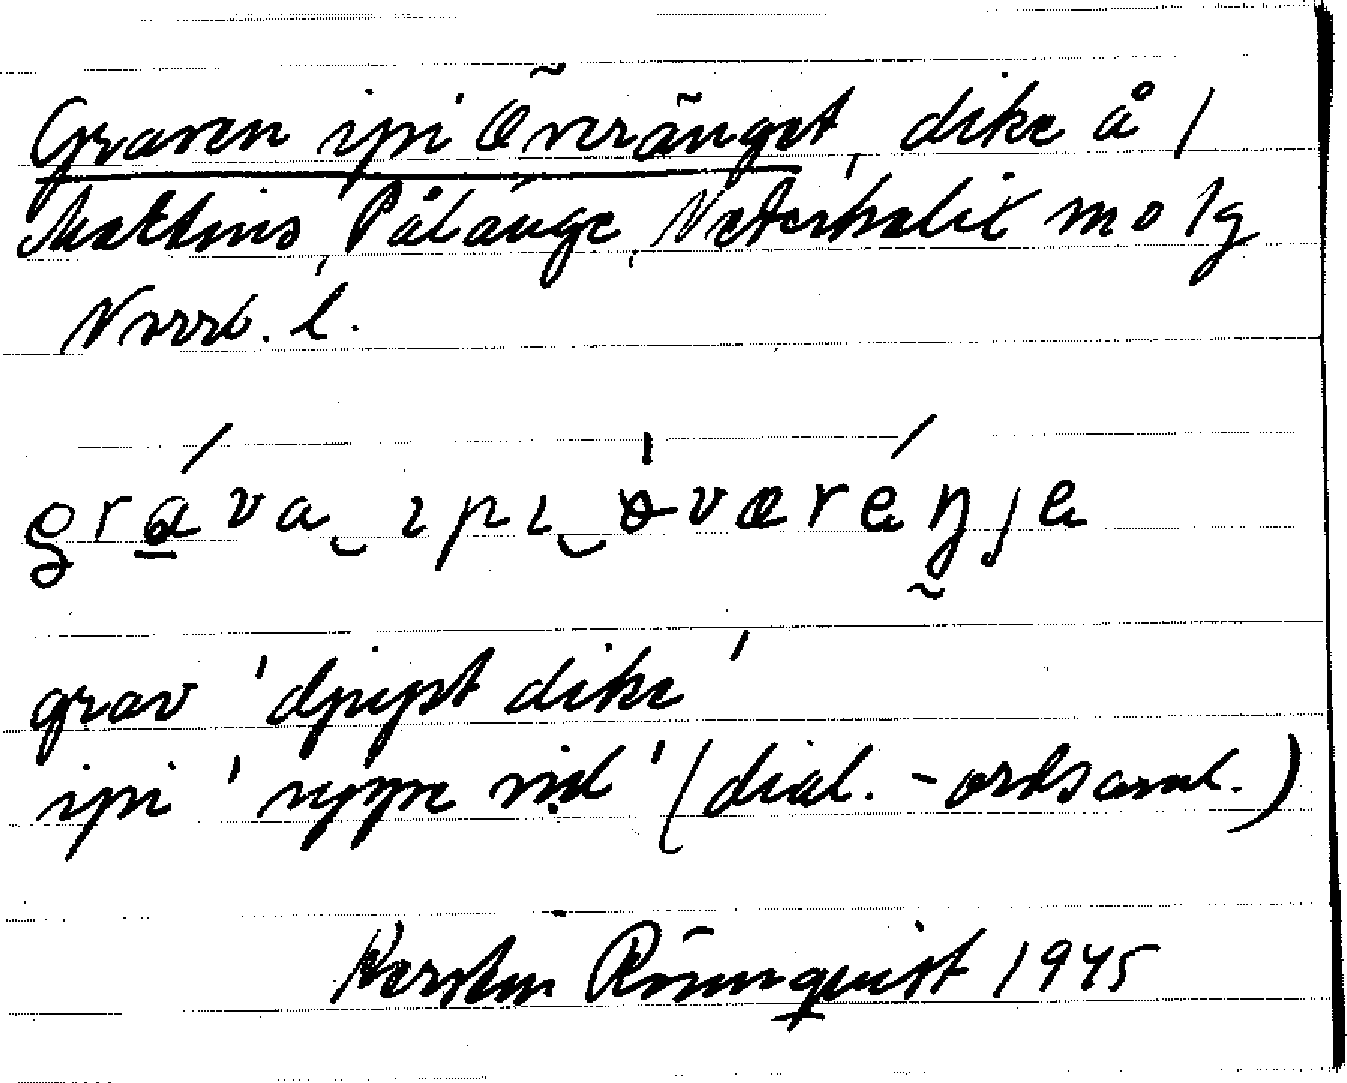 Graven ipi Överänget, dike å 1
Mattens, Pålänge, Nederkalix m o lg
Norrb. l.
grava ipi övärenja
grav 'djupt dike'
ipi 'uppe vid' (dial. - ordsaml.)
Kerstin Rönnquist 1945